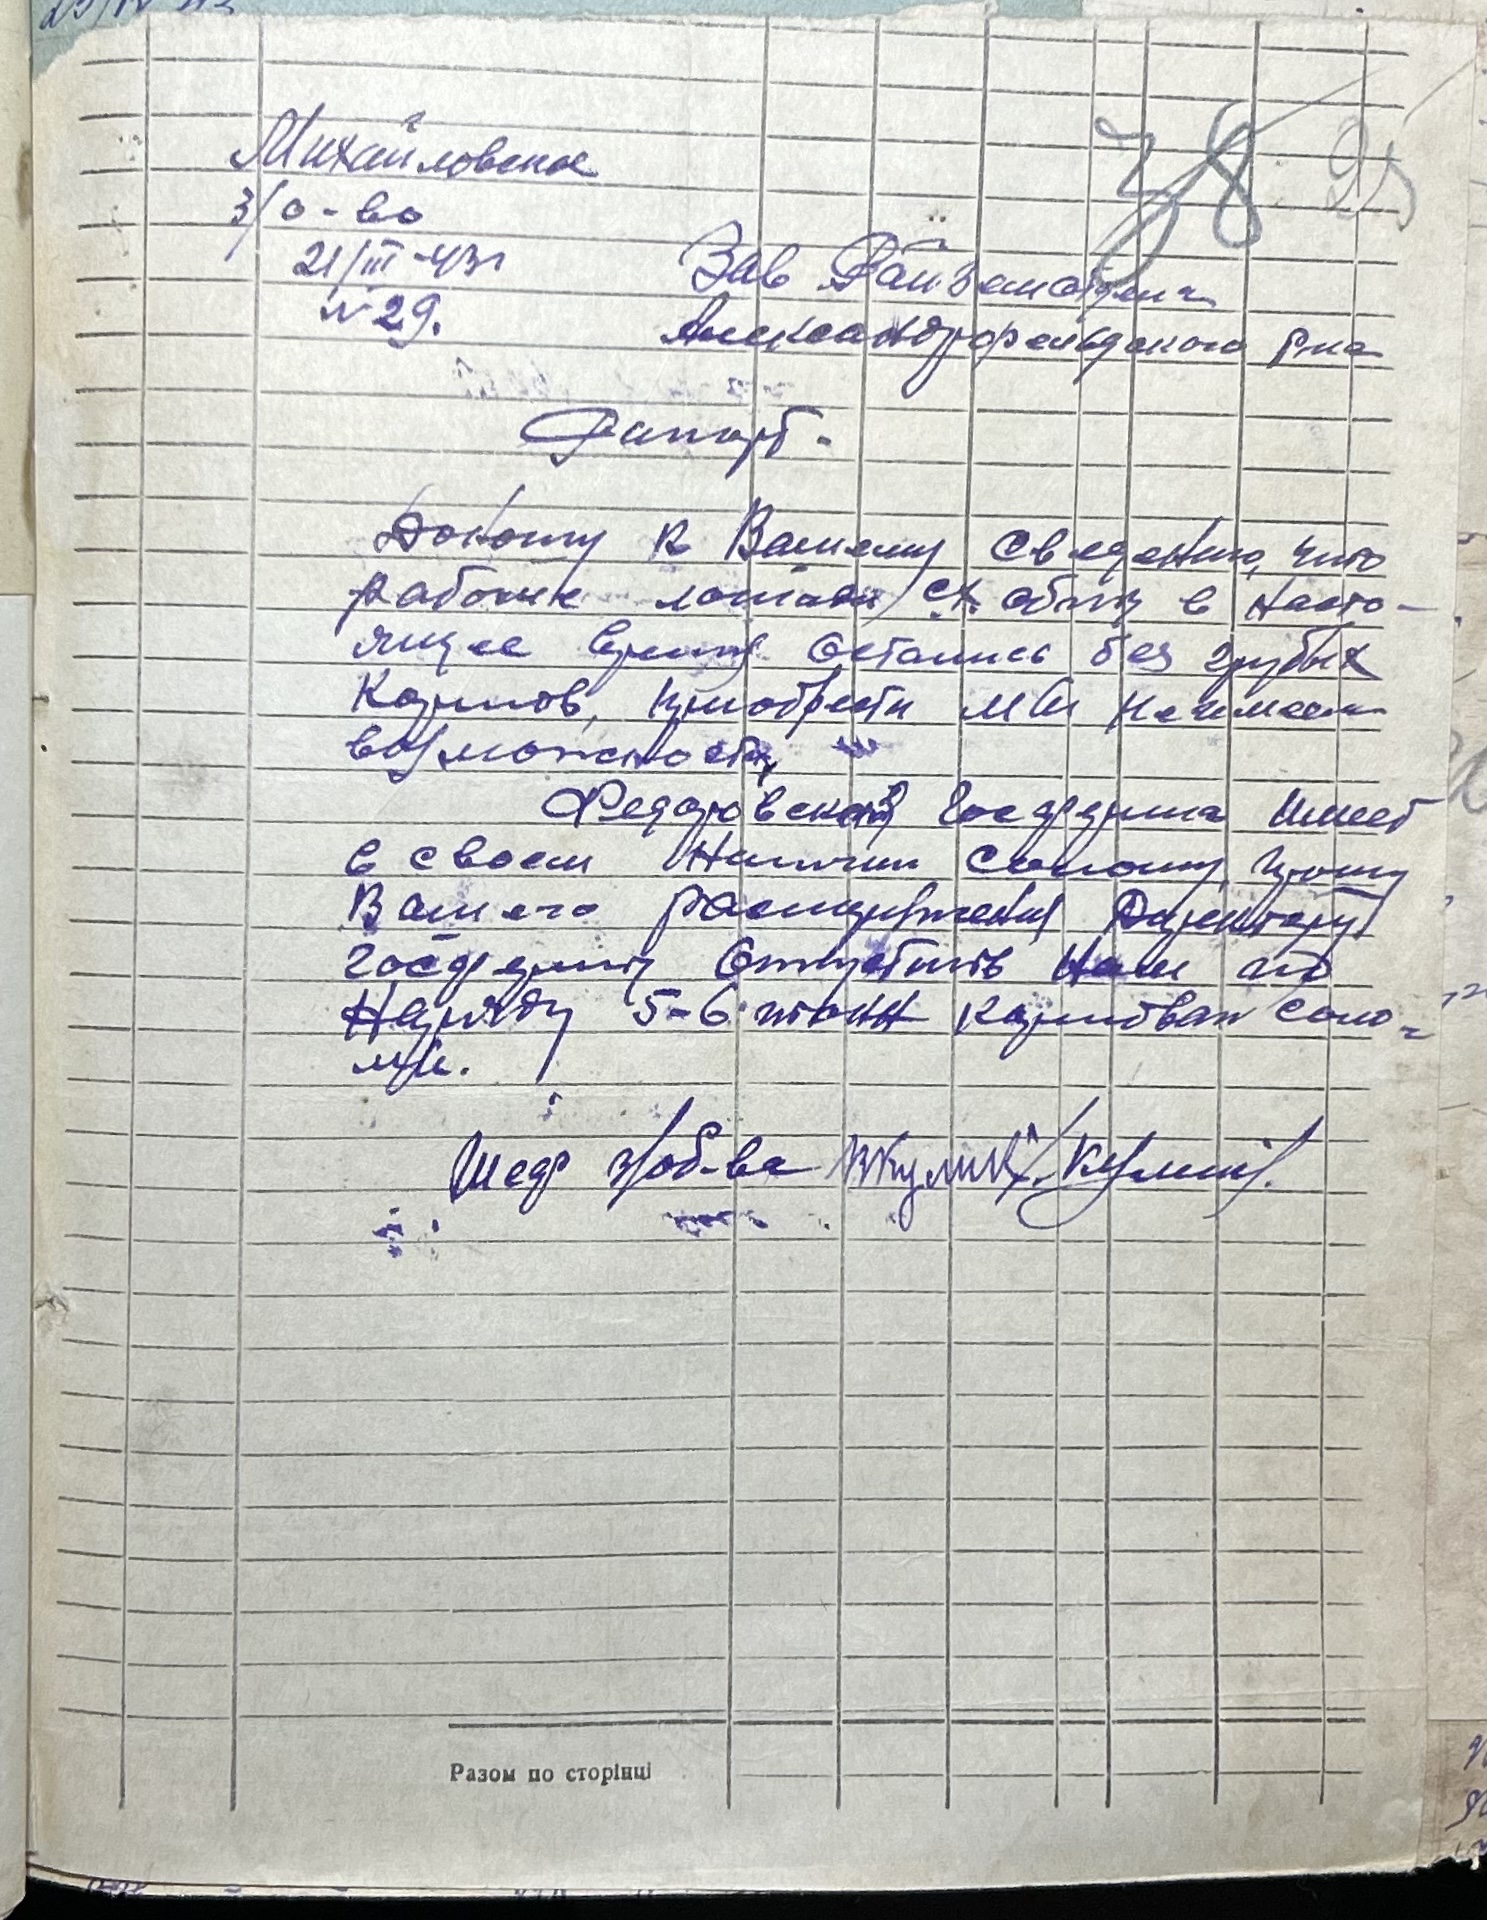 38 95
Михайловское
з/о-во
21/III-43г
№ 29.
Зав Райземотдела
Александрфельдского р-на
Рапорт.
Доношу к Вашему сведению, что
рабочие лошади с.х. общ в насто-
ящее время остались без грубых
кормов, приобрести мы не имеем
возможности,
Федоровская Госферма имеет
в своем наличии солому, прошу
Вашего распоряжения Директору
госфермы отпустить нам по
наряду 5-6 тонн кормовой соло-
мы.
Пред з/об-ва ВКулик /Кулик/.
Разом по сторінці